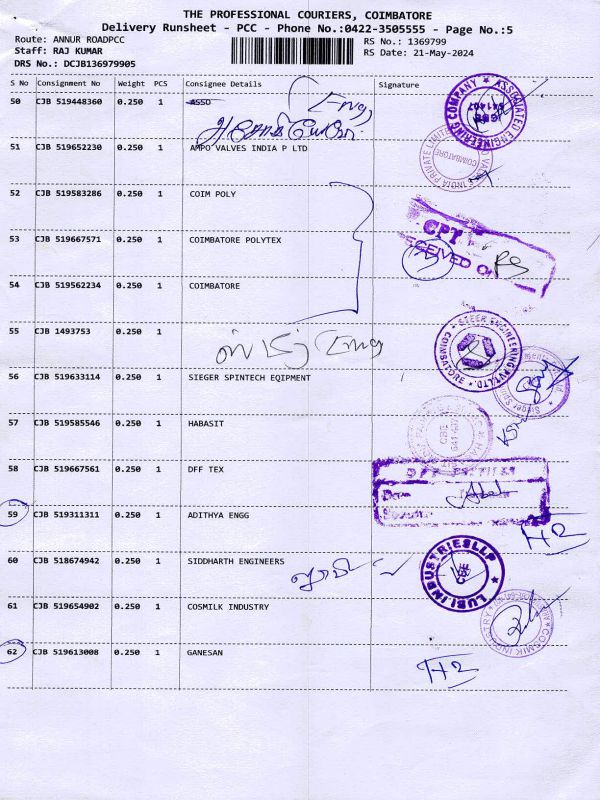 THE PROFESSIONAL COURIERS, COIMBATORE
Delivery Runsheet - PCC - Phone No.:0422-3505555 - Page No.:5
Route: ANNUR ROADPCC
RS No.: 1369799
Staff: RAJ KUMAR
RS Date: 21-May-2024
DRS No.: DCJB136979905
S No Consignment No Weight PCS Consignee Details Signature
50 CJB 519448360 0.250 1 ASSO Engg
ASSOCIATED ENGINEERING COMPANY
51 CJB 519652230 0.250 1 AMPO VALVES INDIA P LTD
INDIA PRIVATE LIMITED COIMBATORE
52 CJB 519583286 0.250 1 COIM POLY
CPT
53 CJB 519667571 0.250 1 COIMBATORE POLYTEX
RECEIVED
54 CJB 519562234 0.250 1 COIMBATORE
55 CJB 1493753 0.250 1 Engg
STEER ENGINEERING PVT LTD. COIMBATORE
56 CJB 519633114 0.250 1 SIEGER SPINTECH EQIPMENT
Sieger
57 CJB 519585546 1 0.250 HABASIT
58 CJB 519667561 0.250 1 DFF TEX
59 CJB 519311311 0.250 1 ADITHYA ENGG
H2
60 CJB 518674942 0.250 1 SIDDHARTH ENGINEERS
LUBI INDUSTRIES LLP CBE
61 CJB 519654902 0.250 1 COSMILK INDUSTRY
COSMIK INDUSTRY
62 CJB 519613008 0.250 1 GANESAN
H2